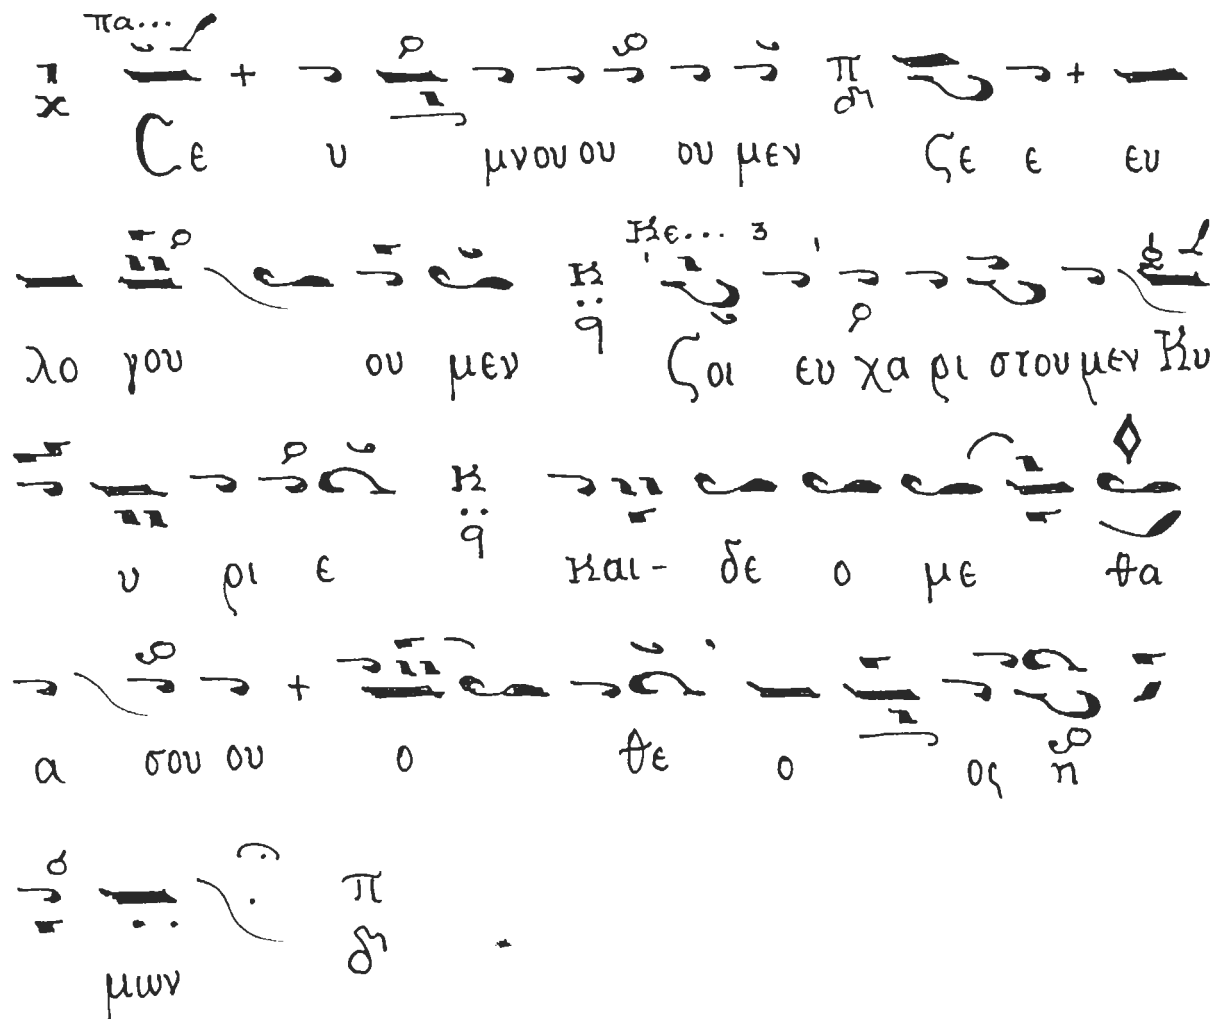 πα...
Σε υ μνου ου ου μεν σε ε ευ
Κε...
λο γου ου μεν σοι ευ χα ρι στου μεν Κυ
υ ρι ε και - δε ο με θα
α σου ου ο θε ο ος η
μων